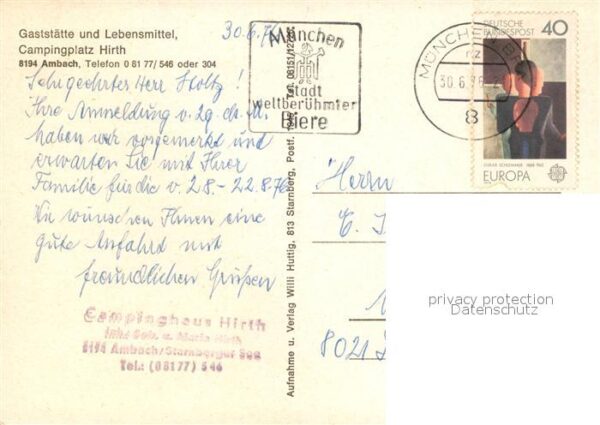 Gaststätte und Lebensmittel,
Campingplatz Hirth
8194 Ambach, Telefon 0 81 77/ 546 oder 304
30.6.76
Sehr geehrter Herr Stoltz!
Ihre Anmeldung v. 29. ds. M.
haben wir vorgemerkt und
erwarten Sie mit Ihrer
Familie für die v. 2.8. - 22.8.76
Wir wünschen Ihnen eine
gute Anfahrt mit
freundlichen Grüßen
Campinghaus Hirth
Inh. Geb. u. Maria Hirth
8194 Ambach/Starnberger See
Tel.: (08177) 546
Aufnahme u. Verlag Willi Huttig, 813 Starnberg, Postf. Tel. 08151/
München
Stadt
weltberühmter
Biere
MÜNCHEN
30.6.76
8
DEUTSCHE
BUNDESPOST
40
OSKAR SCHLEMMER 1888-1943
EUROPA
Herrn
8021
privacy protection
Datenschutz